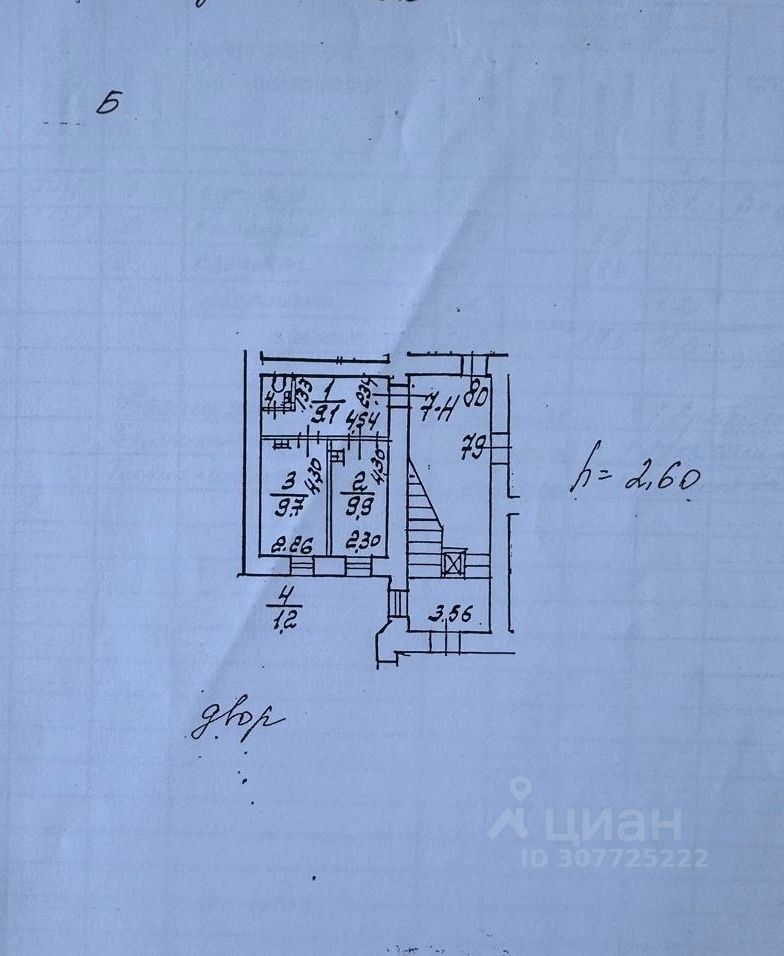 Б
4
1,33
1
9.1
2,34
4,54
7-Н
80
79
3
9.7
4,30
2
9.9
4,30
h= 2,60
2.26
2,30
4
1,2
3,56
двор
циан
ID 307725222